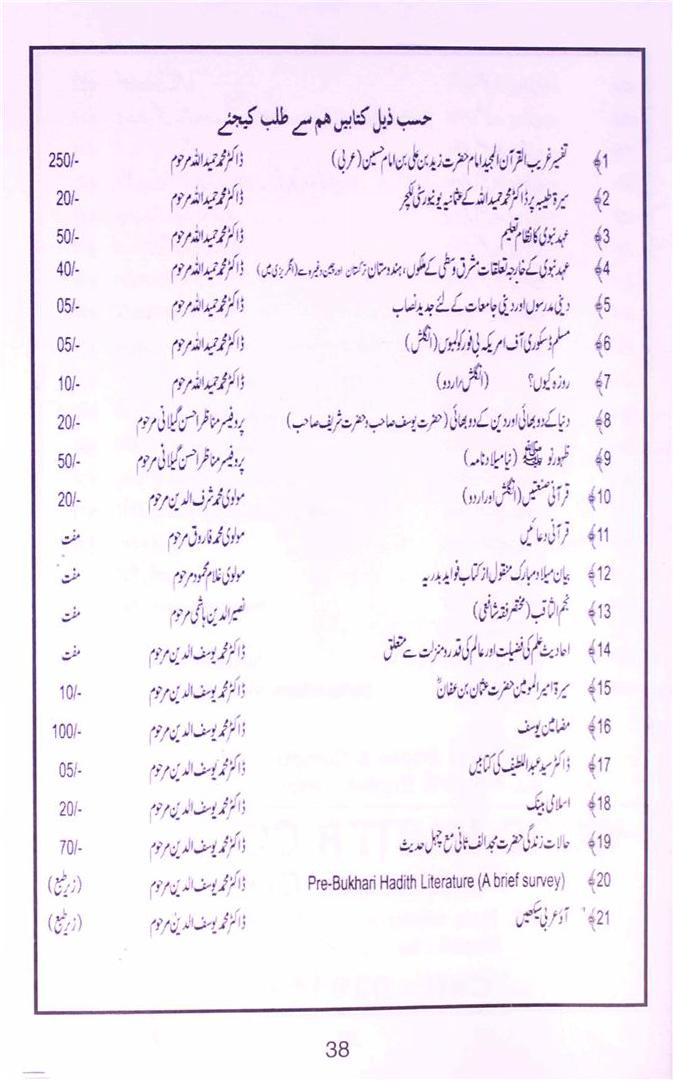 حسب ذیل کتابیں ہم سے طلب کیجئے
1﴾ تفسیر غریب القرآن المجید امام حضرت زید بن علی بن امام حسین (عربی) ڈاکٹر محمد حمید اللہ مرحوم 250/-
2﴾ سیرۃ طیبہ پر ڈاکٹر محمد حمید اللہ کے عثمانیہ یونیورسٹی لکچر ڈاکٹر محمد حمید اللہ مرحوم 20/-
3﴾ عہد نبوی کا نظام تعلیم ڈاکٹر محمد حمید اللہ مرحوم 50/-
4﴾ عہد نبوی کے خارجہ تعلقات مشرق وسطی کے ملکوں، ہندوستان ترکستان اور چین وغیرہ سے (انگریزی میں) ڈاکٹر محمد حمید اللہ مرحوم 40/-
5﴾ دینی مدرسوں اور دینی جامعات کے لئے جدید نصاب ڈاکٹر محمد حمید اللہ مرحوم 05/-
6﴾ مسلم ڈسکوری آف امریکہ بی فور کولمبس (انگلش) ڈاکٹر محمد حمید اللہ مرحوم 05/-
7﴾ روزہ کیوں؟ (انگلش / اردو) ڈاکٹر محمد حمید اللہ مرحوم 10/-
8﴾ دنیا کے دو بھائی اور دین کے دو بھائی (حضرت یوسف صاحب و حضرت شریف صاحب) پروفیسر مناظر احسن گیلانی مرحوم 20/-
9﴾ ظہور نو ﷺ (نیا میلاد نامہ) پروفیسر مناظر احسن گیلانی مرحوم 50/-
10﴾ قرآنی صنعتیں (انگلش اور اردو) مولوی محمد شرف الدین مرحوم 20/-
11﴾ قرآنی دعائیں مولوی محمد فاروق مرحوم مفت
12﴾ بیان میلاد مبارک منقول از کتاب فواید بدریہ مولوی غلام محمود مرحوم مفت
13﴾ نجم الثاقب (مختصر فقہ شافعی) نصیر الدین ہاشمی مرحوم مفت
14﴾ احادیث علم کی فضیلت اور عالم کی قدر و منزلت سے متعلق ڈاکٹر محمد یوسف الدین مرحوم مفت
15﴾ سیرۃ امیر المومنین حضرت عثمان بن عفانؓ ڈاکٹر محمد یوسف الدین مرحوم 10/-
16﴾ مضامین یوسف ڈاکٹر محمد یوسف الدین مرحوم 100/-
17﴾ ڈاکٹر سید عبد اللطیف کی کتابیں ڈاکٹر محمد یوسف الدین مرحوم 05/-
18﴾ اسلامی بینک ڈاکٹر محمد یوسف الدین مرحوم 20/-
19﴾ حالات زندگی حضرت مجدد الف ثانی مع چہل حدیث ڈاکٹر محمد یوسف الدین مرحوم 70/-
20﴾ Pre-Bukhari Hadith Literature (A brief survey) ڈاکٹر محمد یوسف الدین مرحوم (زیر طبع)
21﴾ آؤ عربی سیکھیں ڈاکٹر محمد یوسف الدین مرحوم (زیر طبع)
38